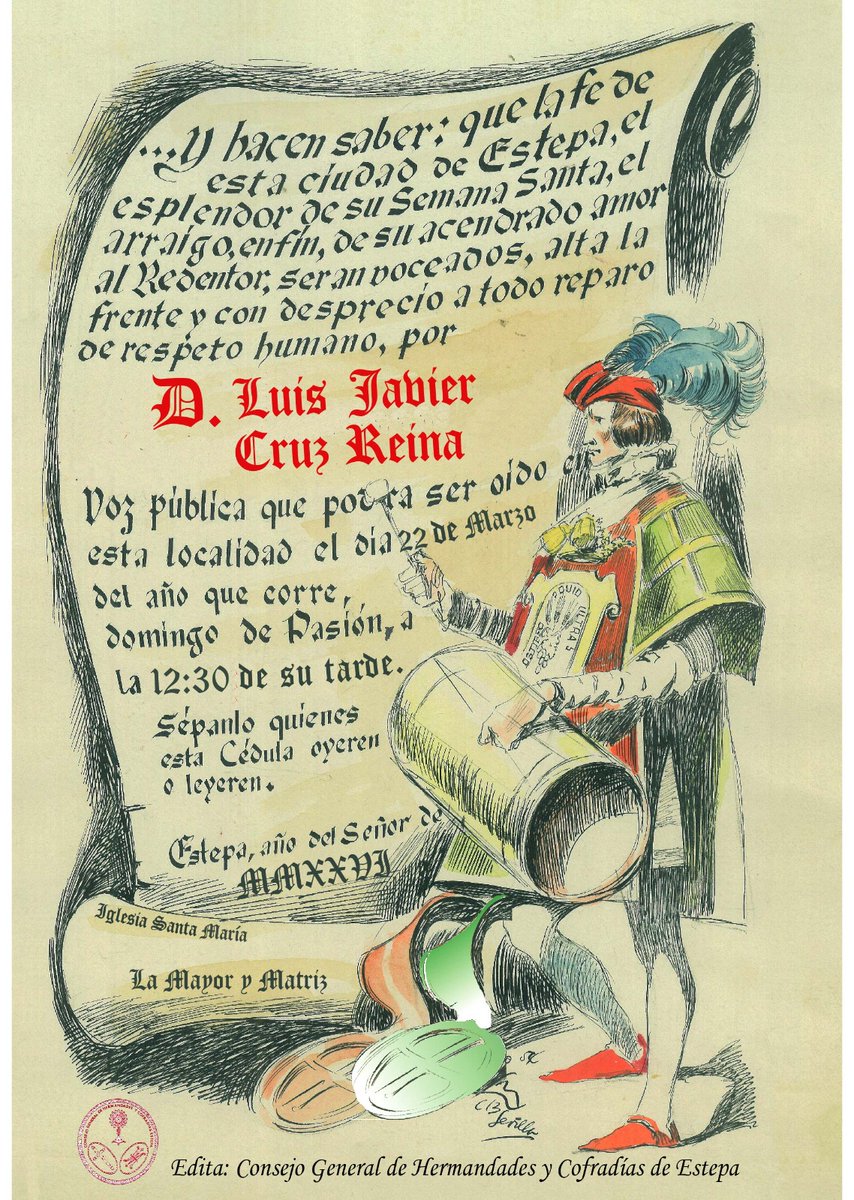 ...Y hacen saber: que la fe de
esta ciudad de Estepa, el
esplendor de su Semana Santa, el
arraigo, enfín, de su acendrado amor
al Redentor, seran voceados, alta la
frente y con desprecio a todo reparo
de respeto humano, por
D. Luis Javier
Cruz Reina
Voz pública que podra ser oido en
esta localidad el dia 22 de Marzo
del año que corre,
domingo de Pasión, a
la 12:30 de su tarde.
Sépanlo quienes
esta Cédula oyeren
o leyeren.
Estepa, año del Señor de
MMXXVI
Iglesia Santa María
La Mayor y Matriz
Sevilla
Edita: Consejo General de Hermandades y Cofradías de Estepa